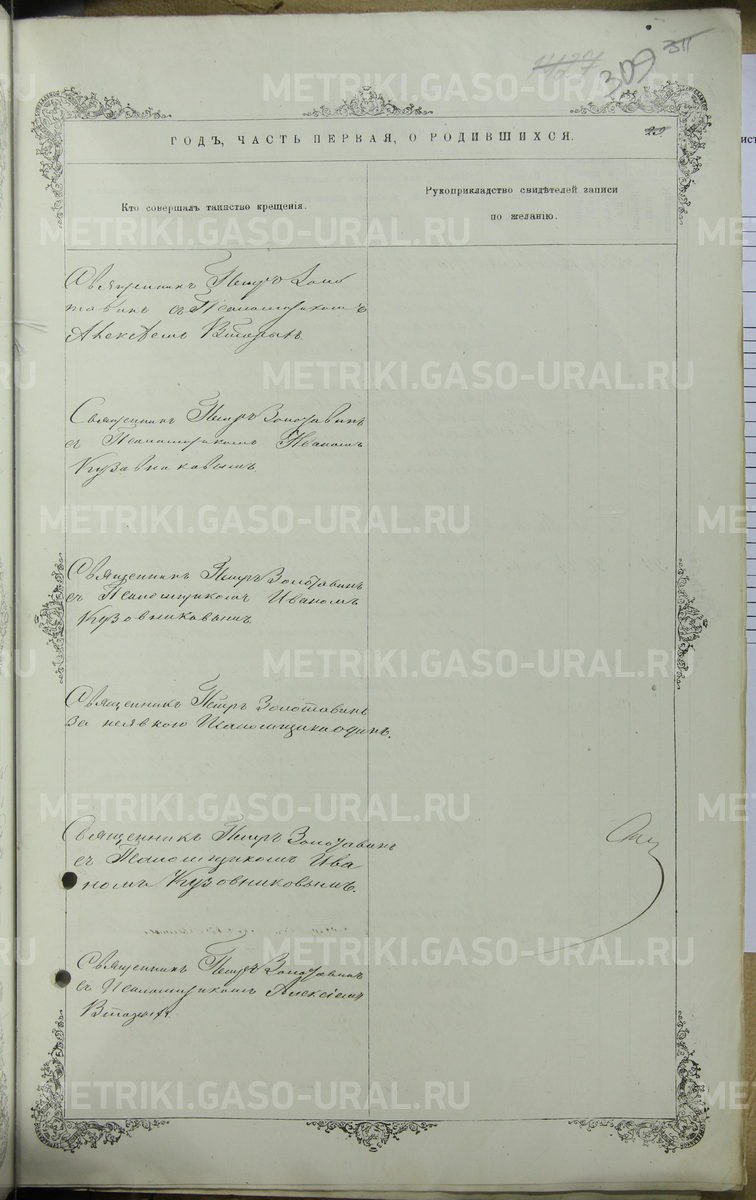 309
ГОДЪ, ЧАСТЬ ПЕРВАЯ, О РОДИВШИХСЯ.
Кто совершалъ таинство крещенія.
Рукоприкладство свидѣтелей записи
по желанію.
Священникъ Петръ Золо
тавинъ съ Псаломщикомъ
Алексѣемъ Вторымъ
Священникъ Петръ Золотавинъ
съ Псаломщикомъ Иваномъ
Кузовниковымъ
Священникъ Петръ Золотавинъ
съ Псаломщикомъ Иваномъ
Кузовниковымъ
Священникъ Петръ Золотавинъ
за неявкою Псаломщика одинъ.
Священникъ Петръ Золотавинъ
съ Псаломщикомъ Ива
номъ Кузовниковымъ.
Священникъ Петръ Золотавинъ
съ Псаломщикомъ Алексіемъ
Вторымъ
METRIKI.GASO-URAL.RU